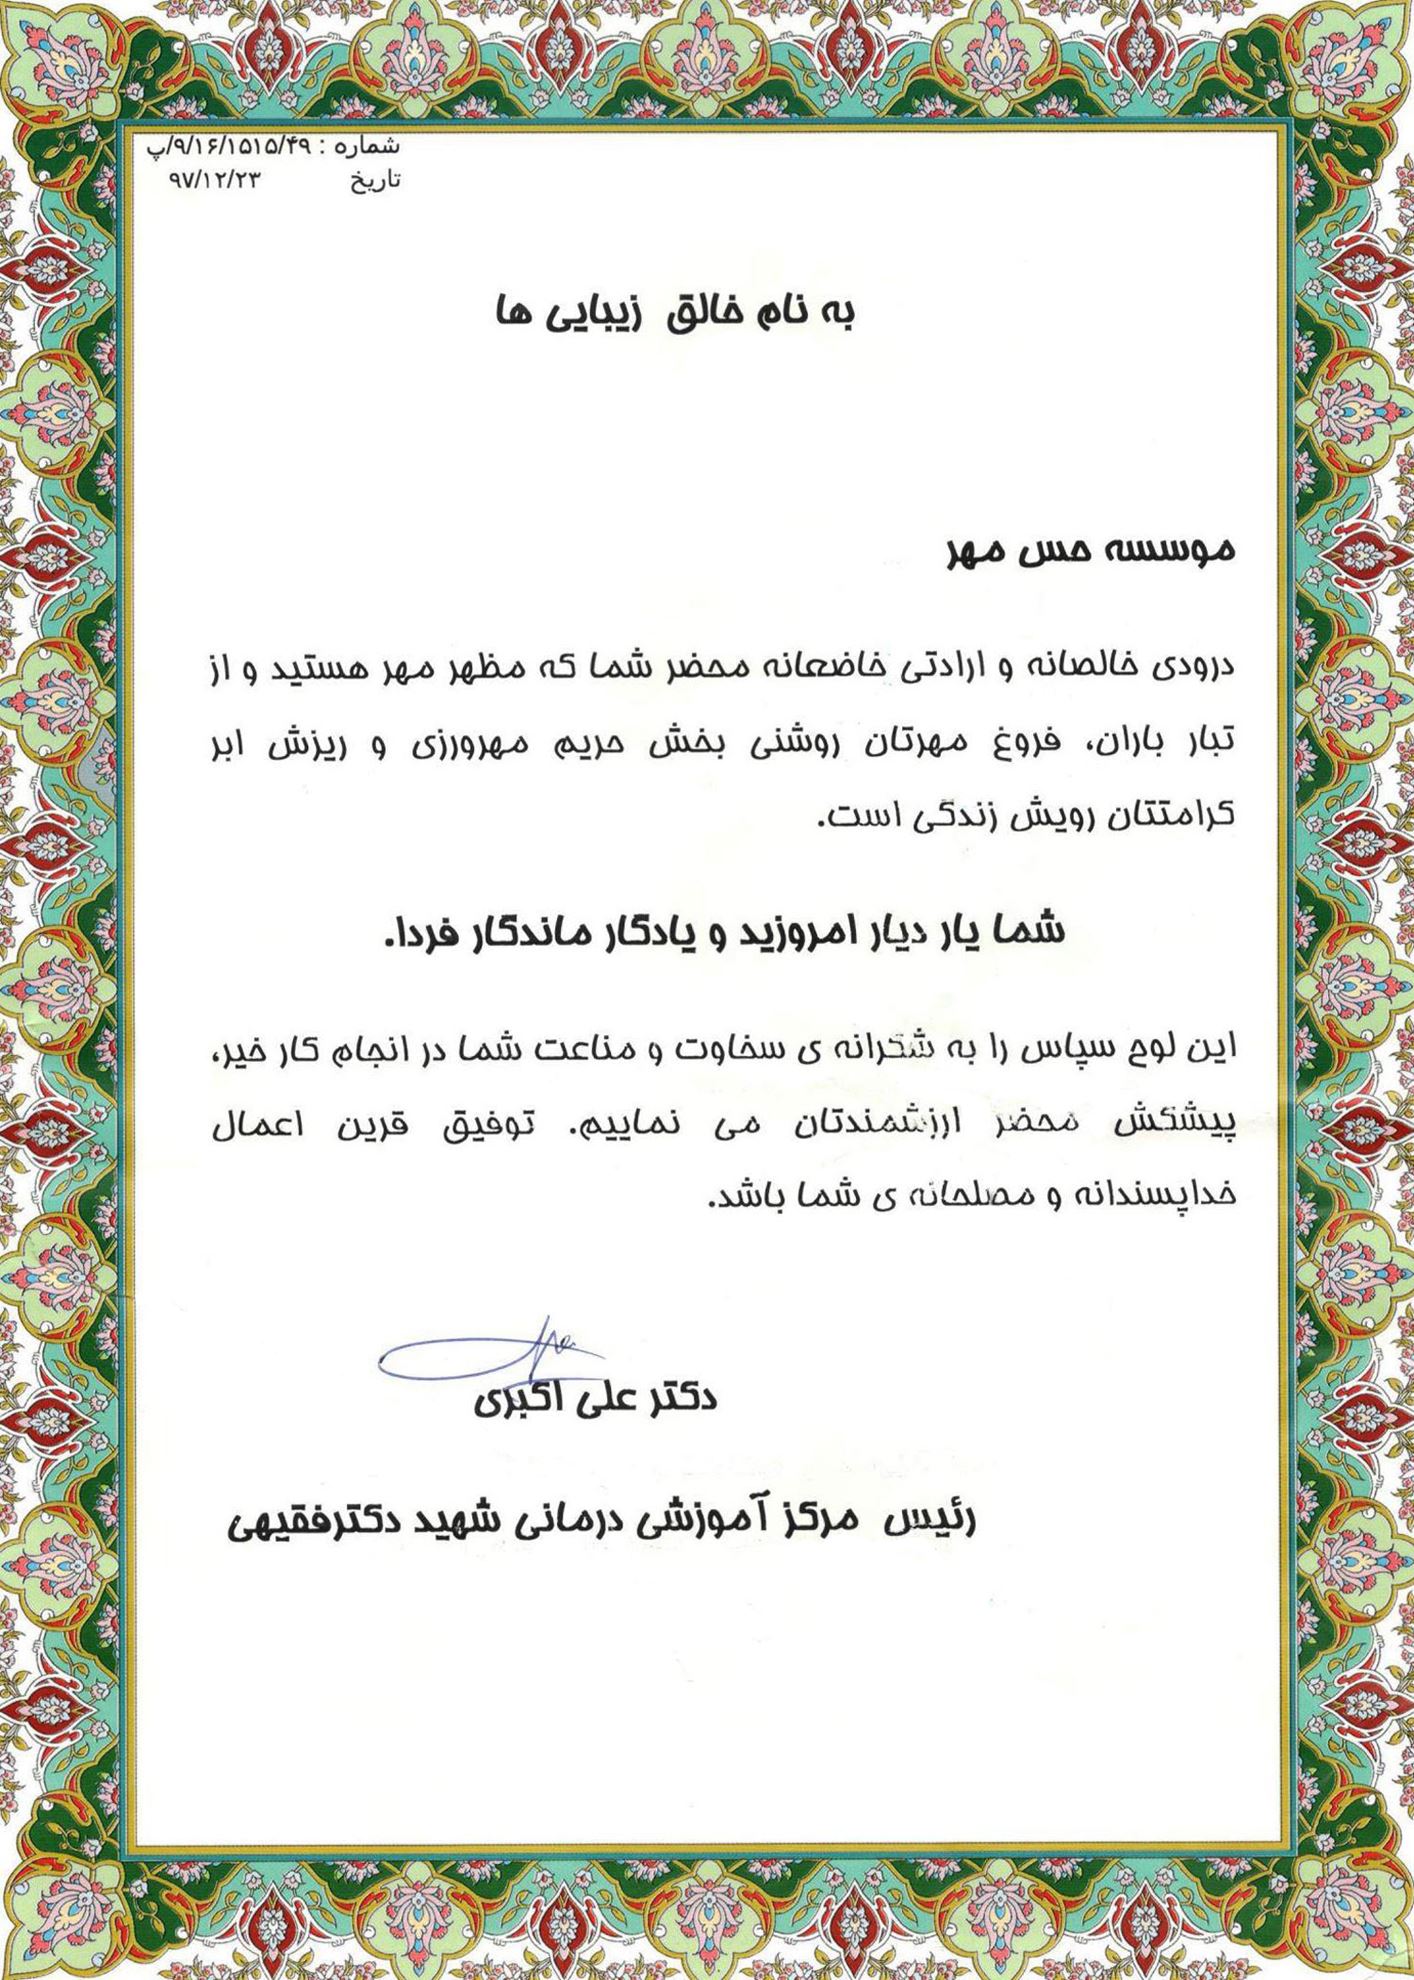 شماره : ۹/۱۶/۱۵۱۵/۴۹/پ
تاریخ ۹۷/۱۲/۲۳
به نام خالق زیبایی ها
موسسه حس مهر
درودی خالصانه و ارادتی خاضعانه محضر شما که مظهر مهر هستید و از
تبار باران، فروغ مهرتان روشنی بخش حریم مهرورزی و ریزش ابر
کرامتتان رویش زندگی است.
شما یار دیار امروزید و یادگار ماندگار فردا.
این لوح سپاس را به شکرانه ی سخاوت و مناعت شما در انجام کار خیر،
پیشکش محضر ارزشمندتان می نماییم. توفیق قرین اعمال
خداپسندانه و مصلحانه ی شما باشد.
دکتر علی اکبری
رئیس مرکز آموزشی درمانی شهید دکترفقیهی